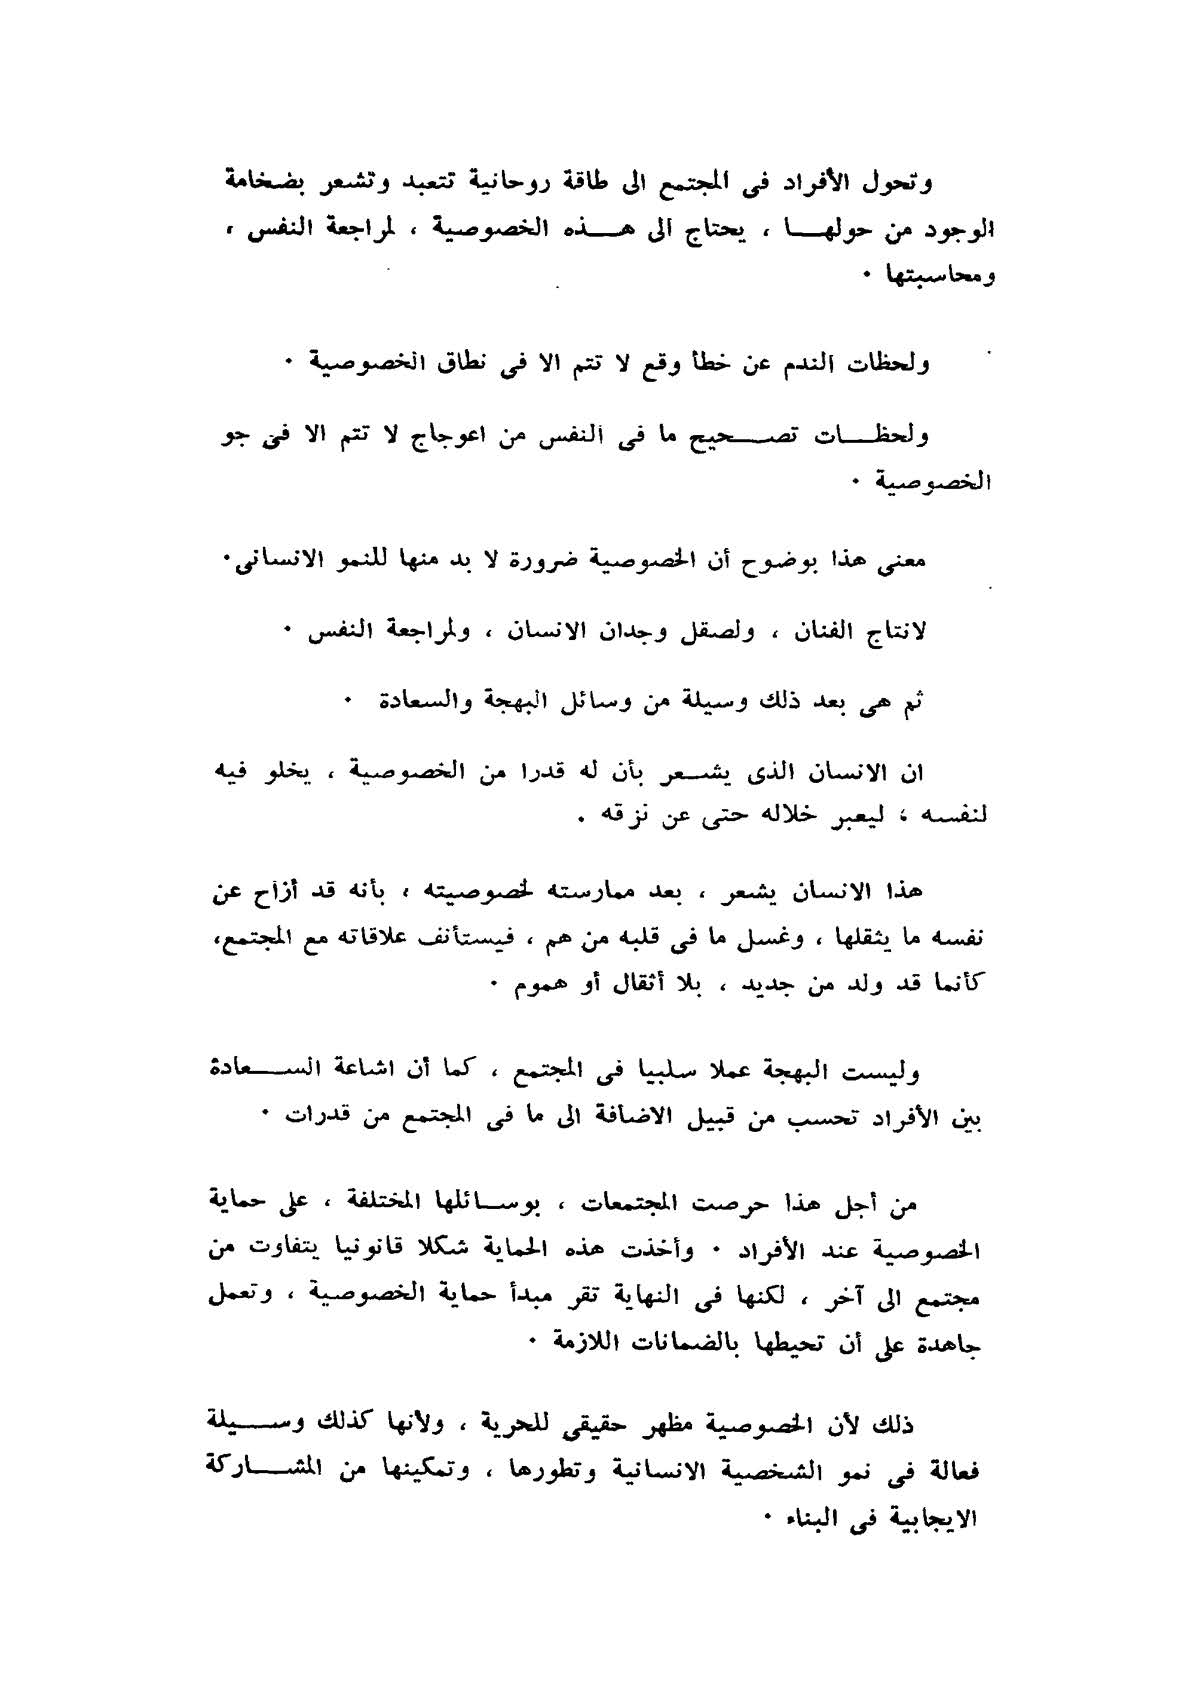 وتحول الأفراد فى المجتمع الى طاقة روحانية تتعبد وتشعر بضخامة
الوجود من حولهـــا ، يحتاج الى هـــذه الخصوصية ، لمراجعة النفس ،
ومحاسبتها ٠
ولحظات الندم عن خطأ وقع لا تتم الا فى نطاق الخصوصية ٠
ولحظـــات تصـــحيح ما فى النفس من اعوجاج لا تتم الا فى جو
الخصوصية ٠
معنى هذا بوضوح أن الخصوصية ضرورة لا بد منها للنمو الانسانى٠
لانتاج الفنان ، ولصقل وجدان الانسان ، ولمراجعة النفس ٠
ثم هى بعد ذلك وسيلة من وسائل البهجة والسعادة ٠
ان الانسان الذى يشـــعر بأن له قدرا من الخصوصية ، يخلو فيه
لنفسه ، ليعبر خلاله حتى عن نزقه .
هذا الانسان يشعر ، بعد ممارسته لخصوصيته ، بأنه قد أزاح عن
نفسه ما يثقلها ، وغسل ما فى قلبه من هم ، فيستأنف علاقاته مع المجتمع،
كأنما قد ولد من جديد ، بلا أثقال أو هموم ٠
وليست البهجة عملا سلبيا فى المجتمع ، كما أن اشاعة الســـعادة
بين الأفراد تحسب من قبيل الاضافة الى ما فى المجتمع من قدرات ٠
من أجل هذا حرصت المجتمعات ، بوســـائلها المختلفة ، على حماية
الخصوصية عند الأفراد ٠ وأخذت هذه الحماية شكلا قانونيا يتفاوت من
مجتمع الى آخر ، لكنها فى النهاية تقر مبدأ حماية الخصوصية ، وتعمل
جاهدة على أن تحيطها بالضمانات اللازمة ٠
ذلك لأن الخصوصية مظهر حقيقى للحرية ، ولأنها كذلك وســـيلة
فعالة فى نمو الشخصية الانسانية وتطورها ، وتمكينها من المشـــاركة
الايجابية فى البناء ٠